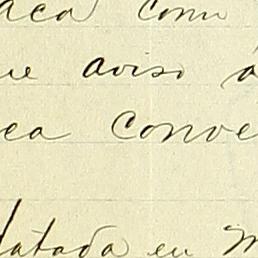 aca com
ue aviso á
ca conve
datada en M